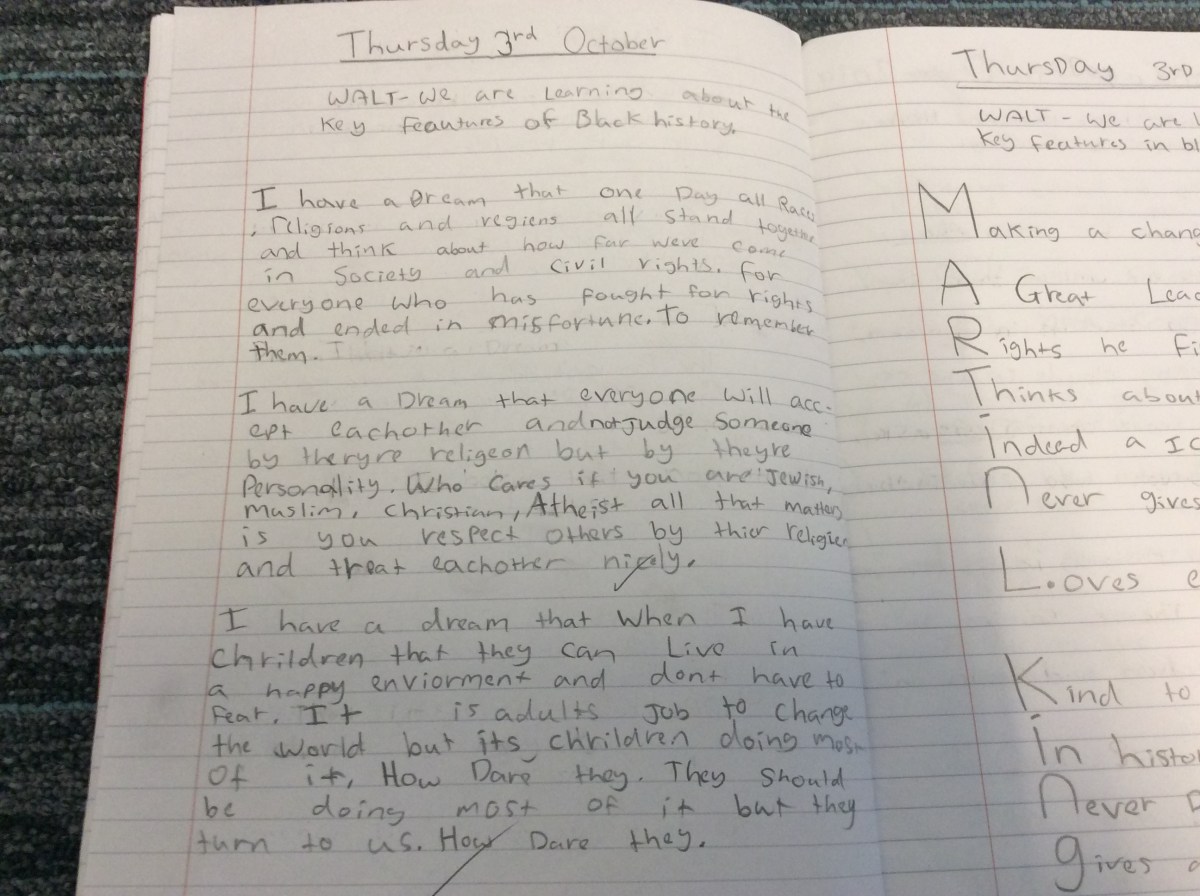 Thursday 3rd October
WALT-We are Learning about the
Key feautures of Black history.
I have a Dream that one Day all Races
, religions and regiens all stand together
and think about how far weve come
in Society and Civil rights. For
everyone who has fought for rights
and ended in misfortune. To remember
them.
I have a Dream that everyone will acc-
ept eachother and not judge Someone
by theryre religeon but by theyre
Personality. Who Cares if you are Jewish,
Muslim, Christian, Atheist all that matters
is you respect others by thier religien
and treat eachother nicely.
I have a dream that When I have
Chrildren that they can Live in
a happy enviorment and dont have to
fear. It is adults Job to Change
the World but its chrildren doing most
Of it, How Dare they. They Should
be doing most of it but they
turn to us. How Dare they.
Thursday 3rd
WALT - We are
Key features in bl
Making a chang
A Great Lead
Rights he Fi
Thinks about
indeed a
Never gives
L.oves e
Kind to
In histor
Never
gives